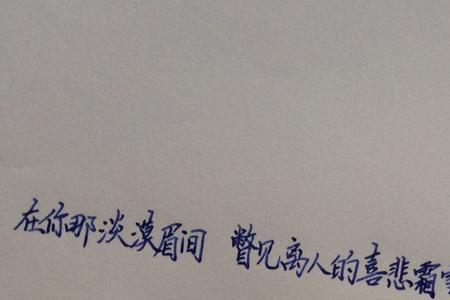 在你那淡漠眉间 瞥见离人的喜悲霜